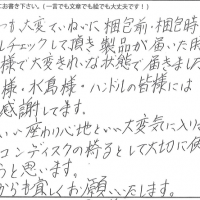 お書き下さい。(一言でも文章でも絵でも大丈夫です!)
大変ていねいに梱包前・梱包時
チェックして頂き製品が届いた時
様で大変きれいな状態で届きました
様・水島様・ハンドルの皆様には
感謝してます。
いい座り心地といい大変気に入り
コンディスクの椅子として大切に使
うと思います。
からも宜しくお願いいたします。